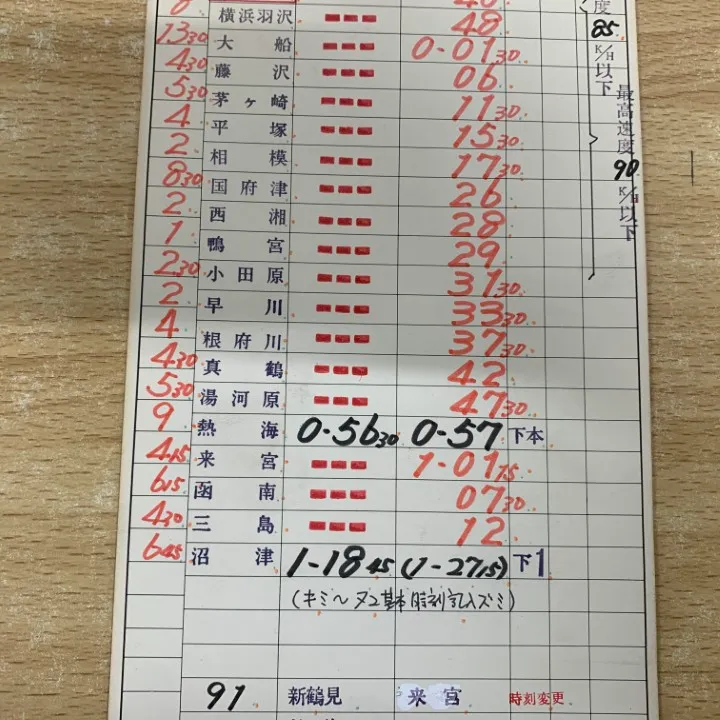 横浜羽沢 48
度 85 K/H 以下
1330 大船 0-0130
430 藤沢 06
530 茅ヶ崎 1130
4 平塚 1530
2 相模 1730
最高速度 90 K/H 以下
830 国府津 26
2 西湘 28
1 鴨宮 29
230 小田原 3130
2 早川 3330
4 根府川 3730
430 真鶴 42
530 湯河原 4730
9 熱海 0-5630 0-57 下本
415 来宮 1-0115
615 函南 0730
430 三島 12
645 沼津 1-1845 (1-2715) 下1
(キミ〜ヌマ基本時刻記入ズミ)
91 新鶴見 来宮 時刻変更